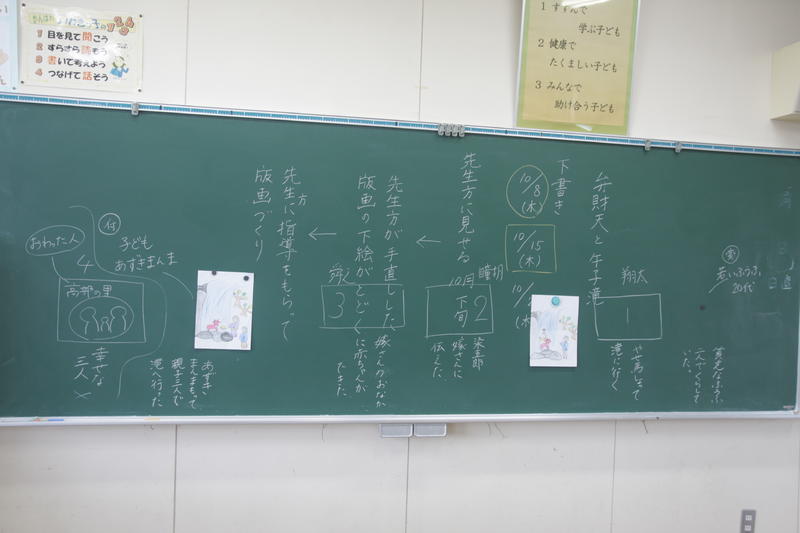 1 目を見て聞こう
2 すらすら読もう
3 書いて考えよう
4 つなげて話そう
1 すすんで
学ぶ子ども
2 健康で
たくましい子ども
3 みんなで
助け合う子ども
若いふうふ
20代
貧乏なふうふ
二人でくらして
いた。
弁財天と午子滝
翔太
1
やせ馬もって
滝に行く
下書き
10/8
(木)
10/15
(木)
10/
(木)
先生方に見せる
10月下旬
2
染五郎
嫁さんに
伝えた
←
先生方が手直しした
版画の下絵がとどく
3
嫁さんのおなか
に赤ちゃんが
できた
←
先生方に指導をもらって
版画づくり
あずき
まんまもって
親子三人で
滝へ行った
付
子ども
あずきまんま
4
おわった人
高部の里
幸せな
三人